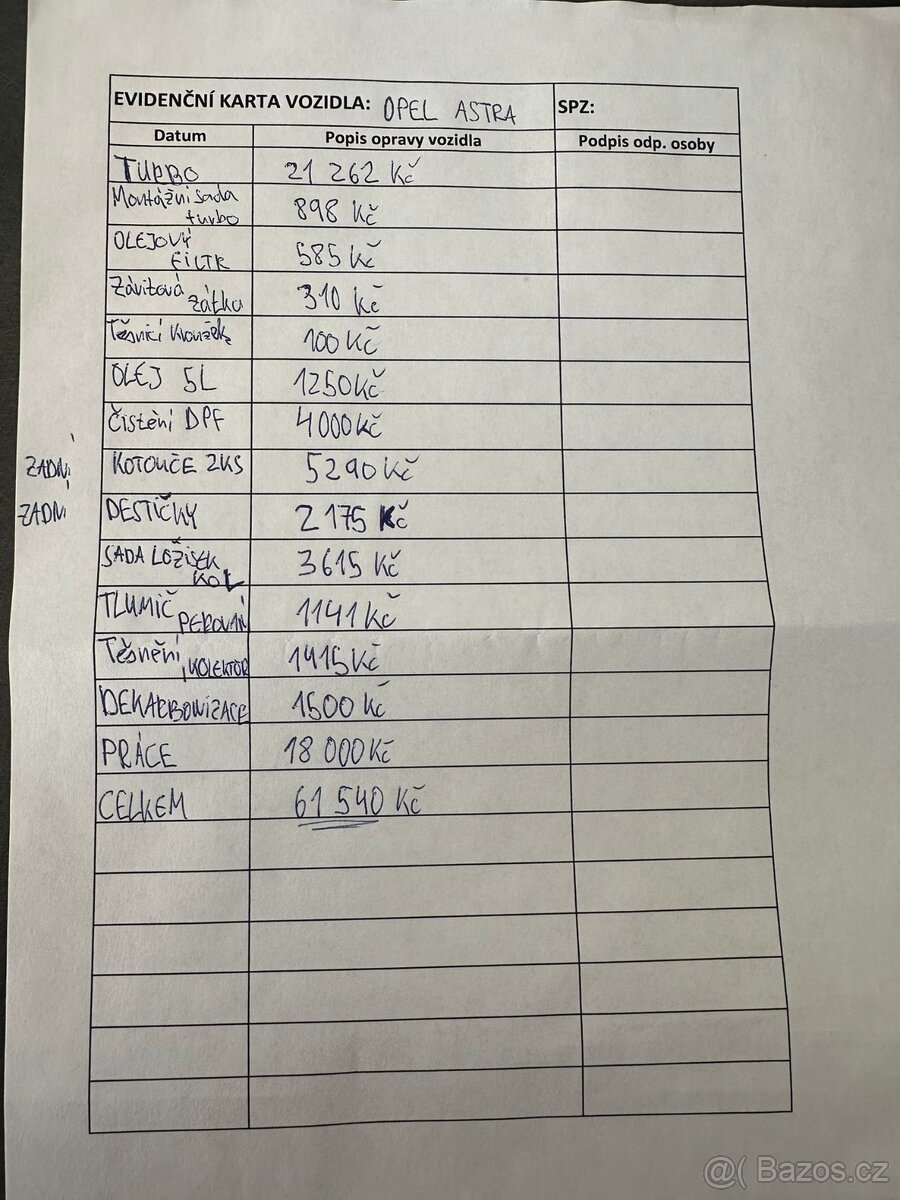 EVIDENČNÍ KARTA VOZIDLA: OPEL ASTRA SPZ:
Datum Popis opravy vozidla Podpis odp. osoby
TURBO 21 262 Kč
Montážní sada turbo 898 Kč
OLEJOVÝ FILTR 585 Kč
Závitová zátka 310 Kč
Těsnící kroužek 100 Kč
OLEJ 5L 1250 Kč
Čistění DPF 4000 Kč
ZADNÍ KOTOUČE 2KS 5290 Kč
ZADNÍ DESTIČKY 2175 Kč
SADA LOŽISEK KOL 3615 Kč
TLUMIČ PEROVÁNÍ 1141 Kč
Těsnění, KOLEKTOR 1415 Kč
DEKARBONIZACE 1500 Kč
PRÁCE 18 000 Kč
CELKEM 61 540 Kč
@( Bazos.cz